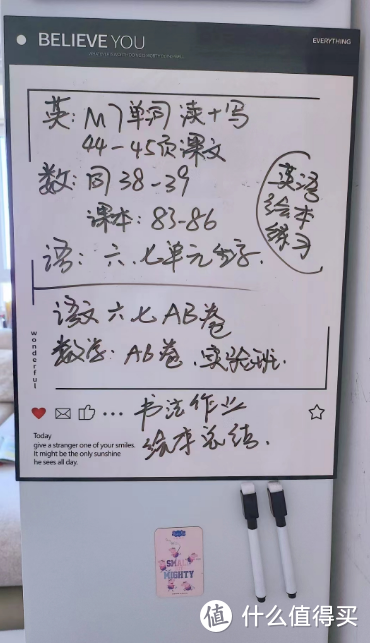 BELIEVE YOU
EVERYTHING
英: M7单词 读+写
44-45页课文
数: 同38-39
课本: 83-86
语: 六、七单元生字.
英语
绘本
练习
语文 六 七 AB卷
数学. AB卷. 实验班.
wonderful
书法作业
绘本总结.
Today
give a stranger one of your smiles.
It might be the only sunshine
he sees all day.
SMALL
MIGHTY
值 什么值得买